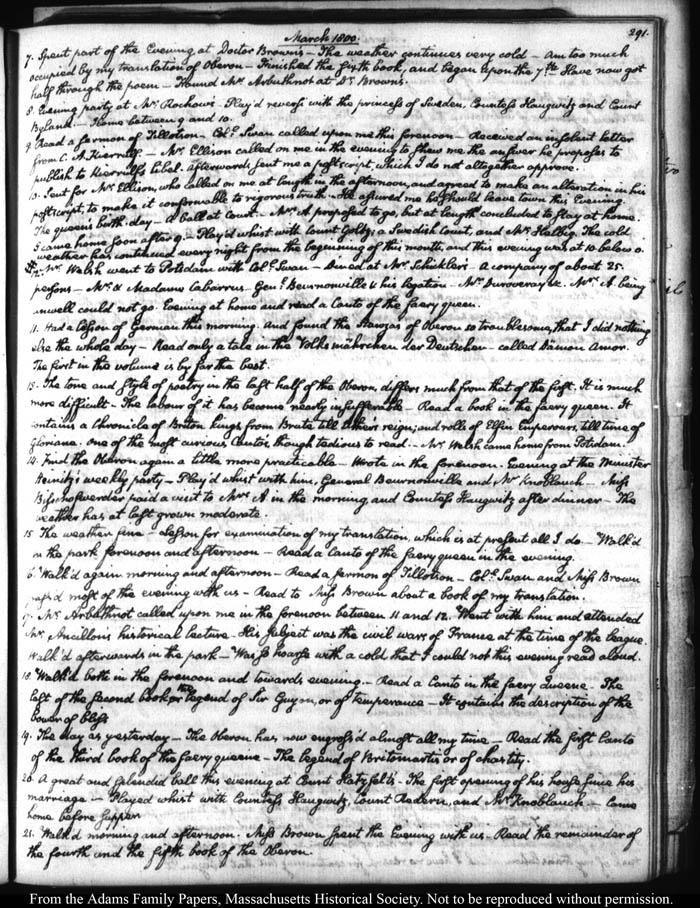 March 1800.
291.
7. Spent part of the Evening at Doctor Brown's — The weather continues very cold — Am too much
occupied by my translation of Oberon — Finished the sixth book, and began upon the 7th. Have now got
half through the poem — Found Mr. Arbuthnot at Dr. Brown's.
8. Evening party at Mr. Rochow's — Play'd reversi with the princess of Sweden, Countess Haugwitz and Count
Byland. — Home between 9 and 10.
9. Read a sermon of Tillotson — Coll. Swan called upon me this forenoon — Received an insolent letter
from C. A. — Mr. Ellison called on me in the evening to shew me the answer he proposes to
publish to libel. Afterwards sent me a postscript, which I do not altogether approve.
10. Sent for Mr. Ellison, who called on me at length in the afternoon, and agreed to make an alteration in his
postscript, to make it conformable to rigorous truth. — He assured me he should leave town this Evening.
The queen's birth-day — a ball at Court. — Mrs. A proposed to go, but at length concluded to stay at home.
I came home soon after 9. — Play'd whist with Count Goltz, a Swedish Count, and Mrs. Halbig. The cold
weather has continued every night from the beginning of this month, and this evening was at 10 below 0.
Mr. Welsh went to Potsdam with Coll. Swan — Dined at Mr. Schickler's — A company of about 25
persons — Mr. & Madame Cabarrus. Genl. Beurnonville & his legation — Mr. Duroveray &c. Mrs. A. being
unwell could not go. Evening at home and read a Canto of the faery queen.
11. Had a lesson of German this morning. And found the Stanzas of Oberon so troublesome, that I did nothing
else the whole day — Read only a tale in the Volksmährchen der Deutschen — called Dämon Amor.
The first in the volume is by far the best.
13. The tone and style of poetry in the last half of the Oberon, differs much from that of the first. It is much
more difficult — The labour of it has become nearly insufferable — Read a book in the faery queen. It
contains a Chronicle of Briton kings from Brute till Uther's reign; and rolls of Elfin Emperours, till time of
Gloriana. One of the most curious Cantos, though tedious to read. — Mr. Welsh came home from Potsdam.
14. Find the Oberon again a little more practicable — Wrote in the forenoon. Evening at the Minister
Heinitz's weekly party — Play'd whist with him, General Beurnonville and Mr. Knoblauch — Miss
Bishofswerder paid a visit to Mrs. A in the morning, and Countess Haugwitz after dinner — The
weather has at last grown moderate.
15. The weather fine — Lesson for examination of my translation, which is at present all I do — Walk'd
in the park forenoon and afternoon — Read a Canto of the faery queen in the evening.
6. Walk'd again morning and afternoon — Read a sermon of Tillotson — Coll. Swan and Miss Brown
pass'd most of the evening with us — Read to Miss Brown about a book of my translation.
17. Mr. Arbuthnot called upon me in the forenoon between 11 and 12. Went with him and attended
Mr. Ancillon's historical lecture — His subject was the civil wars of France at the time of the league.
Walk'd afterwards in the park — Was so hoarse with a cold that I could not this evening read aloud.
18. Walk'd both in the forenoon and towards evening. — Read a Canto in the faery Queene. The
last of the second book or the legend of Sir Guyon, or of temperance — It contains the description of the
Bower of bliss
19. The day as yesterday — The Oberon has now engross'd almost all my time — Read the first Canto
of the third book of the faery queene — The legend of Britomartis or of chastity.
20. A great and splendid ball this evening at Count Hatzfeldt's — The first opening of his house since his
marriage — Played whist with Countess Haugwitz, Count Redern, and Mr. Knoblauch — Came
home before supper
21. Walk'd morning and afternoon. Miss Brown spent the Evening with us — Read the remainder of
the fourth and the fifth book of the Oberon.
From the Adams Family Papers, Massachusetts Historical Society. Not to be reproduced without permission.